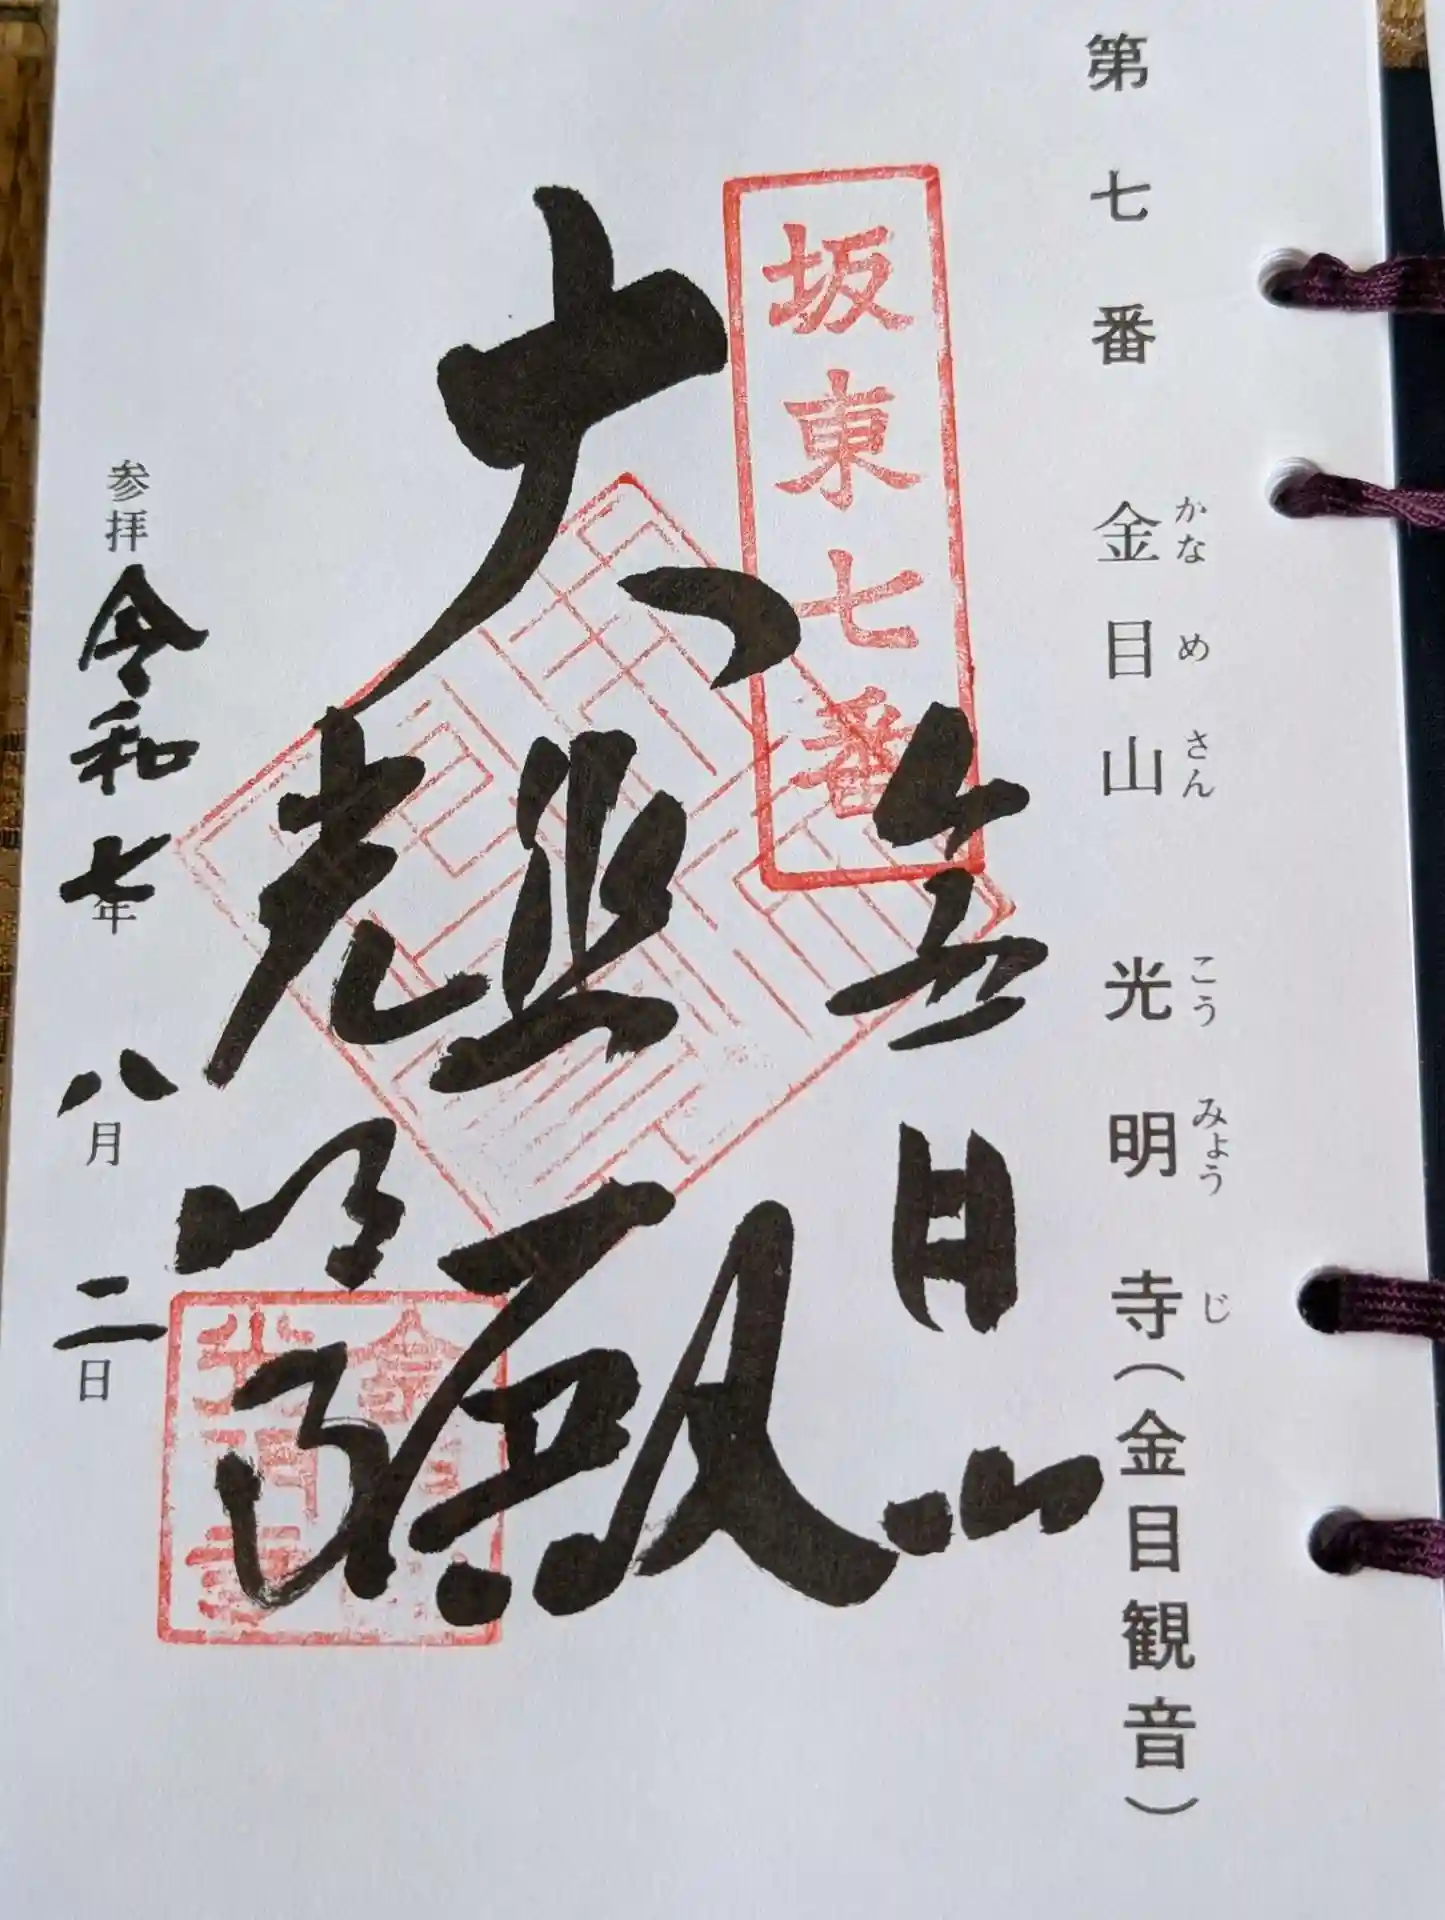 第七番 金目山 光明寺（金目観音）
かなめさん こうみょうじ
坂東七番
金目山
大悲殿
光明寺
参拝 令和七年 八月 二日